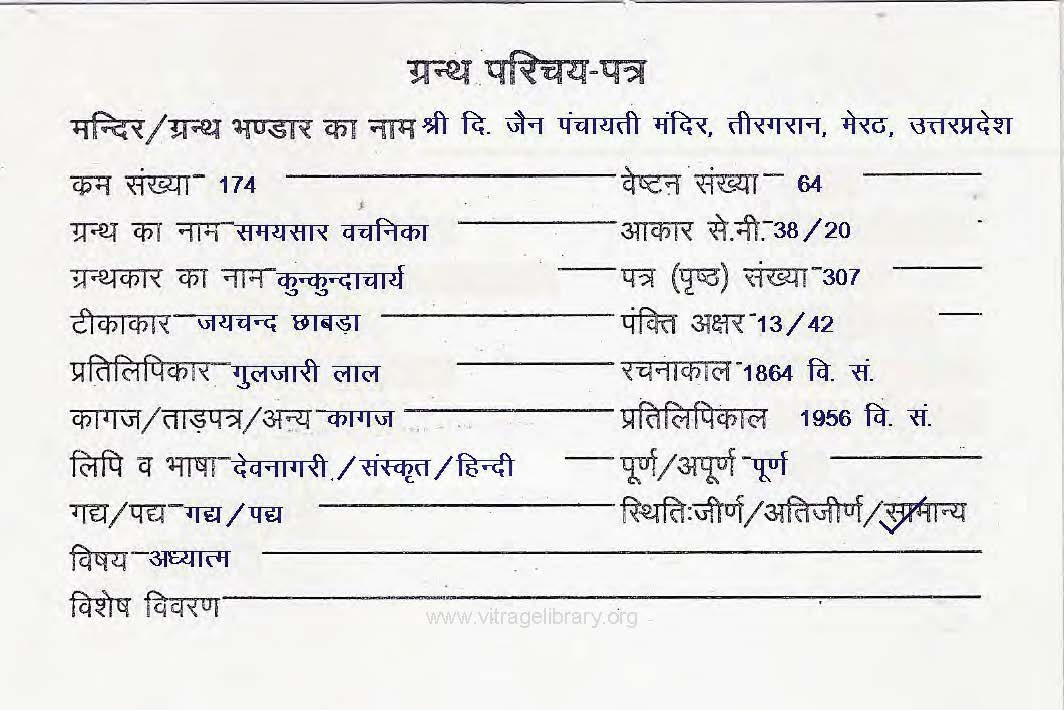 ग्रन्थ परिचय-पत्र
मन्दिर/ग्रन्थ भण्डार का नाम श्री दि. जैन पंचायती मंदिर, तीरगरान, मेरठ, उत्तरप्रदेश
क्रम संख्या 174 वेष्टन संख्या 64
ग्रन्थ का नाम समयसार वचनिका आकार से.मी. 38/20
ग्रन्थकार का नाम कुन्कुन्दाचार्य पत्र (पृष्ठ) संख्या 307
टीकाकार जयचन्द छाबड़ा पंक्ति अक्षर 13/42
प्रतिलिपिकार गुलजारी लाल रचनाकाल 1864 वि. सं.
कागज/ताड़पत्र/अन्य कागज प्रतिलिपिकाल 1956 वि. सं.
लिपि व भाषा देवनागरी/संस्कृत/हिन्दी पूर्ण/अपूर्ण पूर्ण
गद्य/पद्य गद्य/पद्य स्थिति:जीर्ण/अतिजीर्ण/सामान्य
विषय अध्यात्म
विशेष विवरण
www.vitragelibrary.org